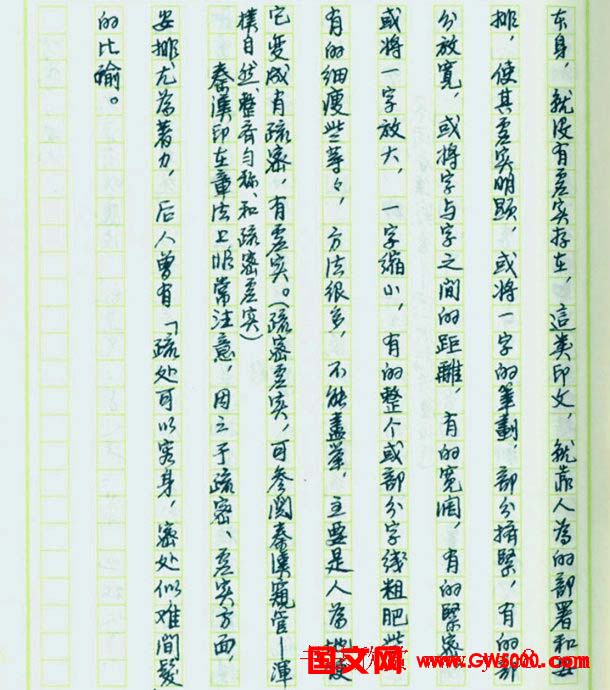 本身，就没有虚实存在，這类印文，就靠人为的部署和安
排，使其虚实明顯，或将一字的筆劃，部分擠緊，有的部
分放寬，或将字与字之间的距離，有的宽阔，有的緊密
或将一字放大，一字缩小，有的整个或部分字线粗肥些
有的细瘦些等々，方法很多，不能盡举，主要是人为地使
它变成有疏密，有虚实。（疏密虚实，可参阅秦漢窺管—渾
樸自然、整齐匀称、和疏密虚实）
秦漢印在章法上非常注意，因之于疏密、虚实方面，
安排尤为着力，后人曾有「疏处可以容身，密处似难间髮
的比喻。
国文网 www.GW5000.com